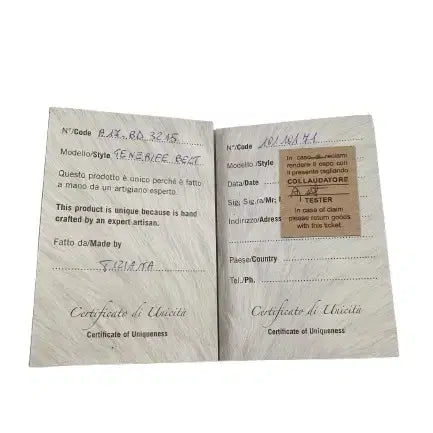 N°/Code A17-BD 3215
Modello/Style TENERIFE BELT
Questo prodotto è unico perché è fatto
a mano da un artigiano esperto.
This product is unique because is hand
crafted by an expert artisan.
Fatto da/Made by
TIZIANA
Certificato di Unicità
Certificate of Uniqueness
N°/Code 10110171
Modello /Style
Data/Date
Sig. Sig.ra/Mr;
Indirizzo/Address
Paese/Country
Tel./Ph.
In caso di reclami
rendere il capo con
il presente tagliando
COLLAUDATORE
TESTER
In case of claim
please return goods
with this ticket.
Certificato di Unicità
Certificate of Uniqueness